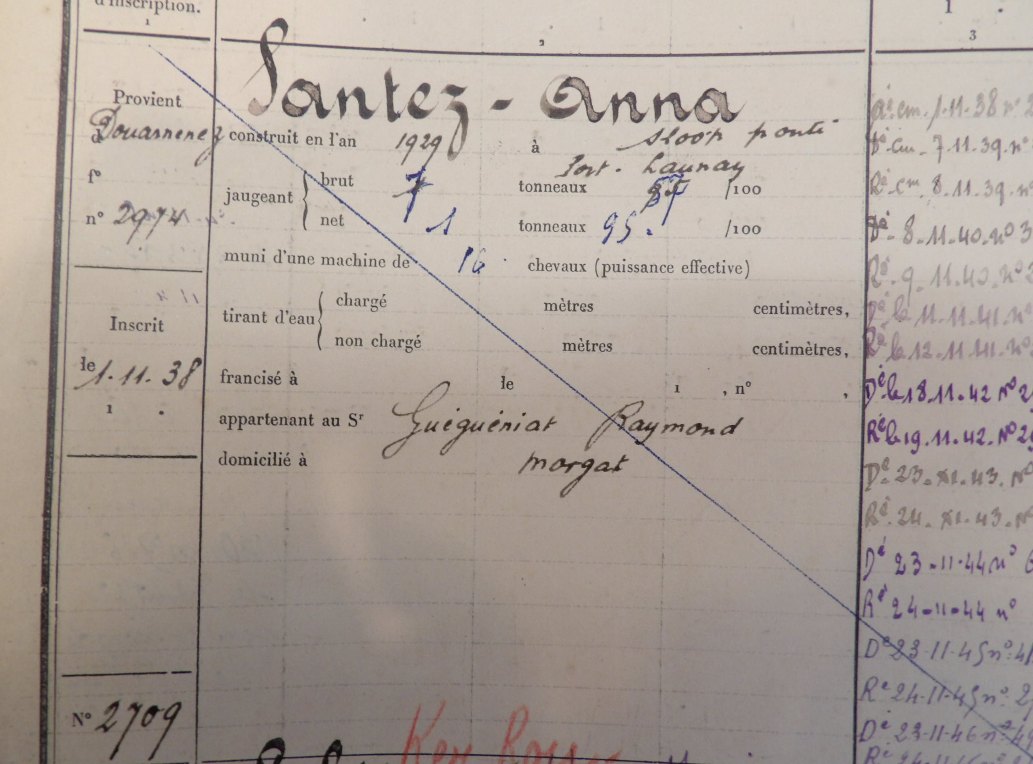 d'inscription.
1
2
1
3
Provient
d Douarnenez
f°
n° 2974
Inscrit
le 1.11.38
1 .
N° 2709
Santez - Anna
construit en l'an 1929 à sloop ponté
Port-Launay
jaugeant brut 7 tonneaux /100
net 1 tonneaux 95. /100
muni d'une machine de 16 chevaux (puissance effective)
tirant d'eau chargé mètres centimètres,
non chargé mètres centimètres,
francisé à le 1 , n° ,
appartenant au Sr Guéguéniat Raymond
domicilié à Morgat
Ker
cm. 1.11.38 n°
Dé cm. 7.11.39. n°
Ré cm 8.11.39. n°
Dé 8.11.40. n° 3
Ré 9.11.40. n°
Dé le 11.11.41. n°
Ré le 12.11.41. n°
Dé le 18.11.42 N° 2
Ré le 19.11.42. N° 2
Dé 23. XI. 43. N°
Ré 24. XI. 43. N°
Dé 23-11-44 n° 6
Ré 24-11-44 n°
Dé 23-11-45 n° 4
Ré 24-11-45 n° 2
Dé 23-11-46 n°